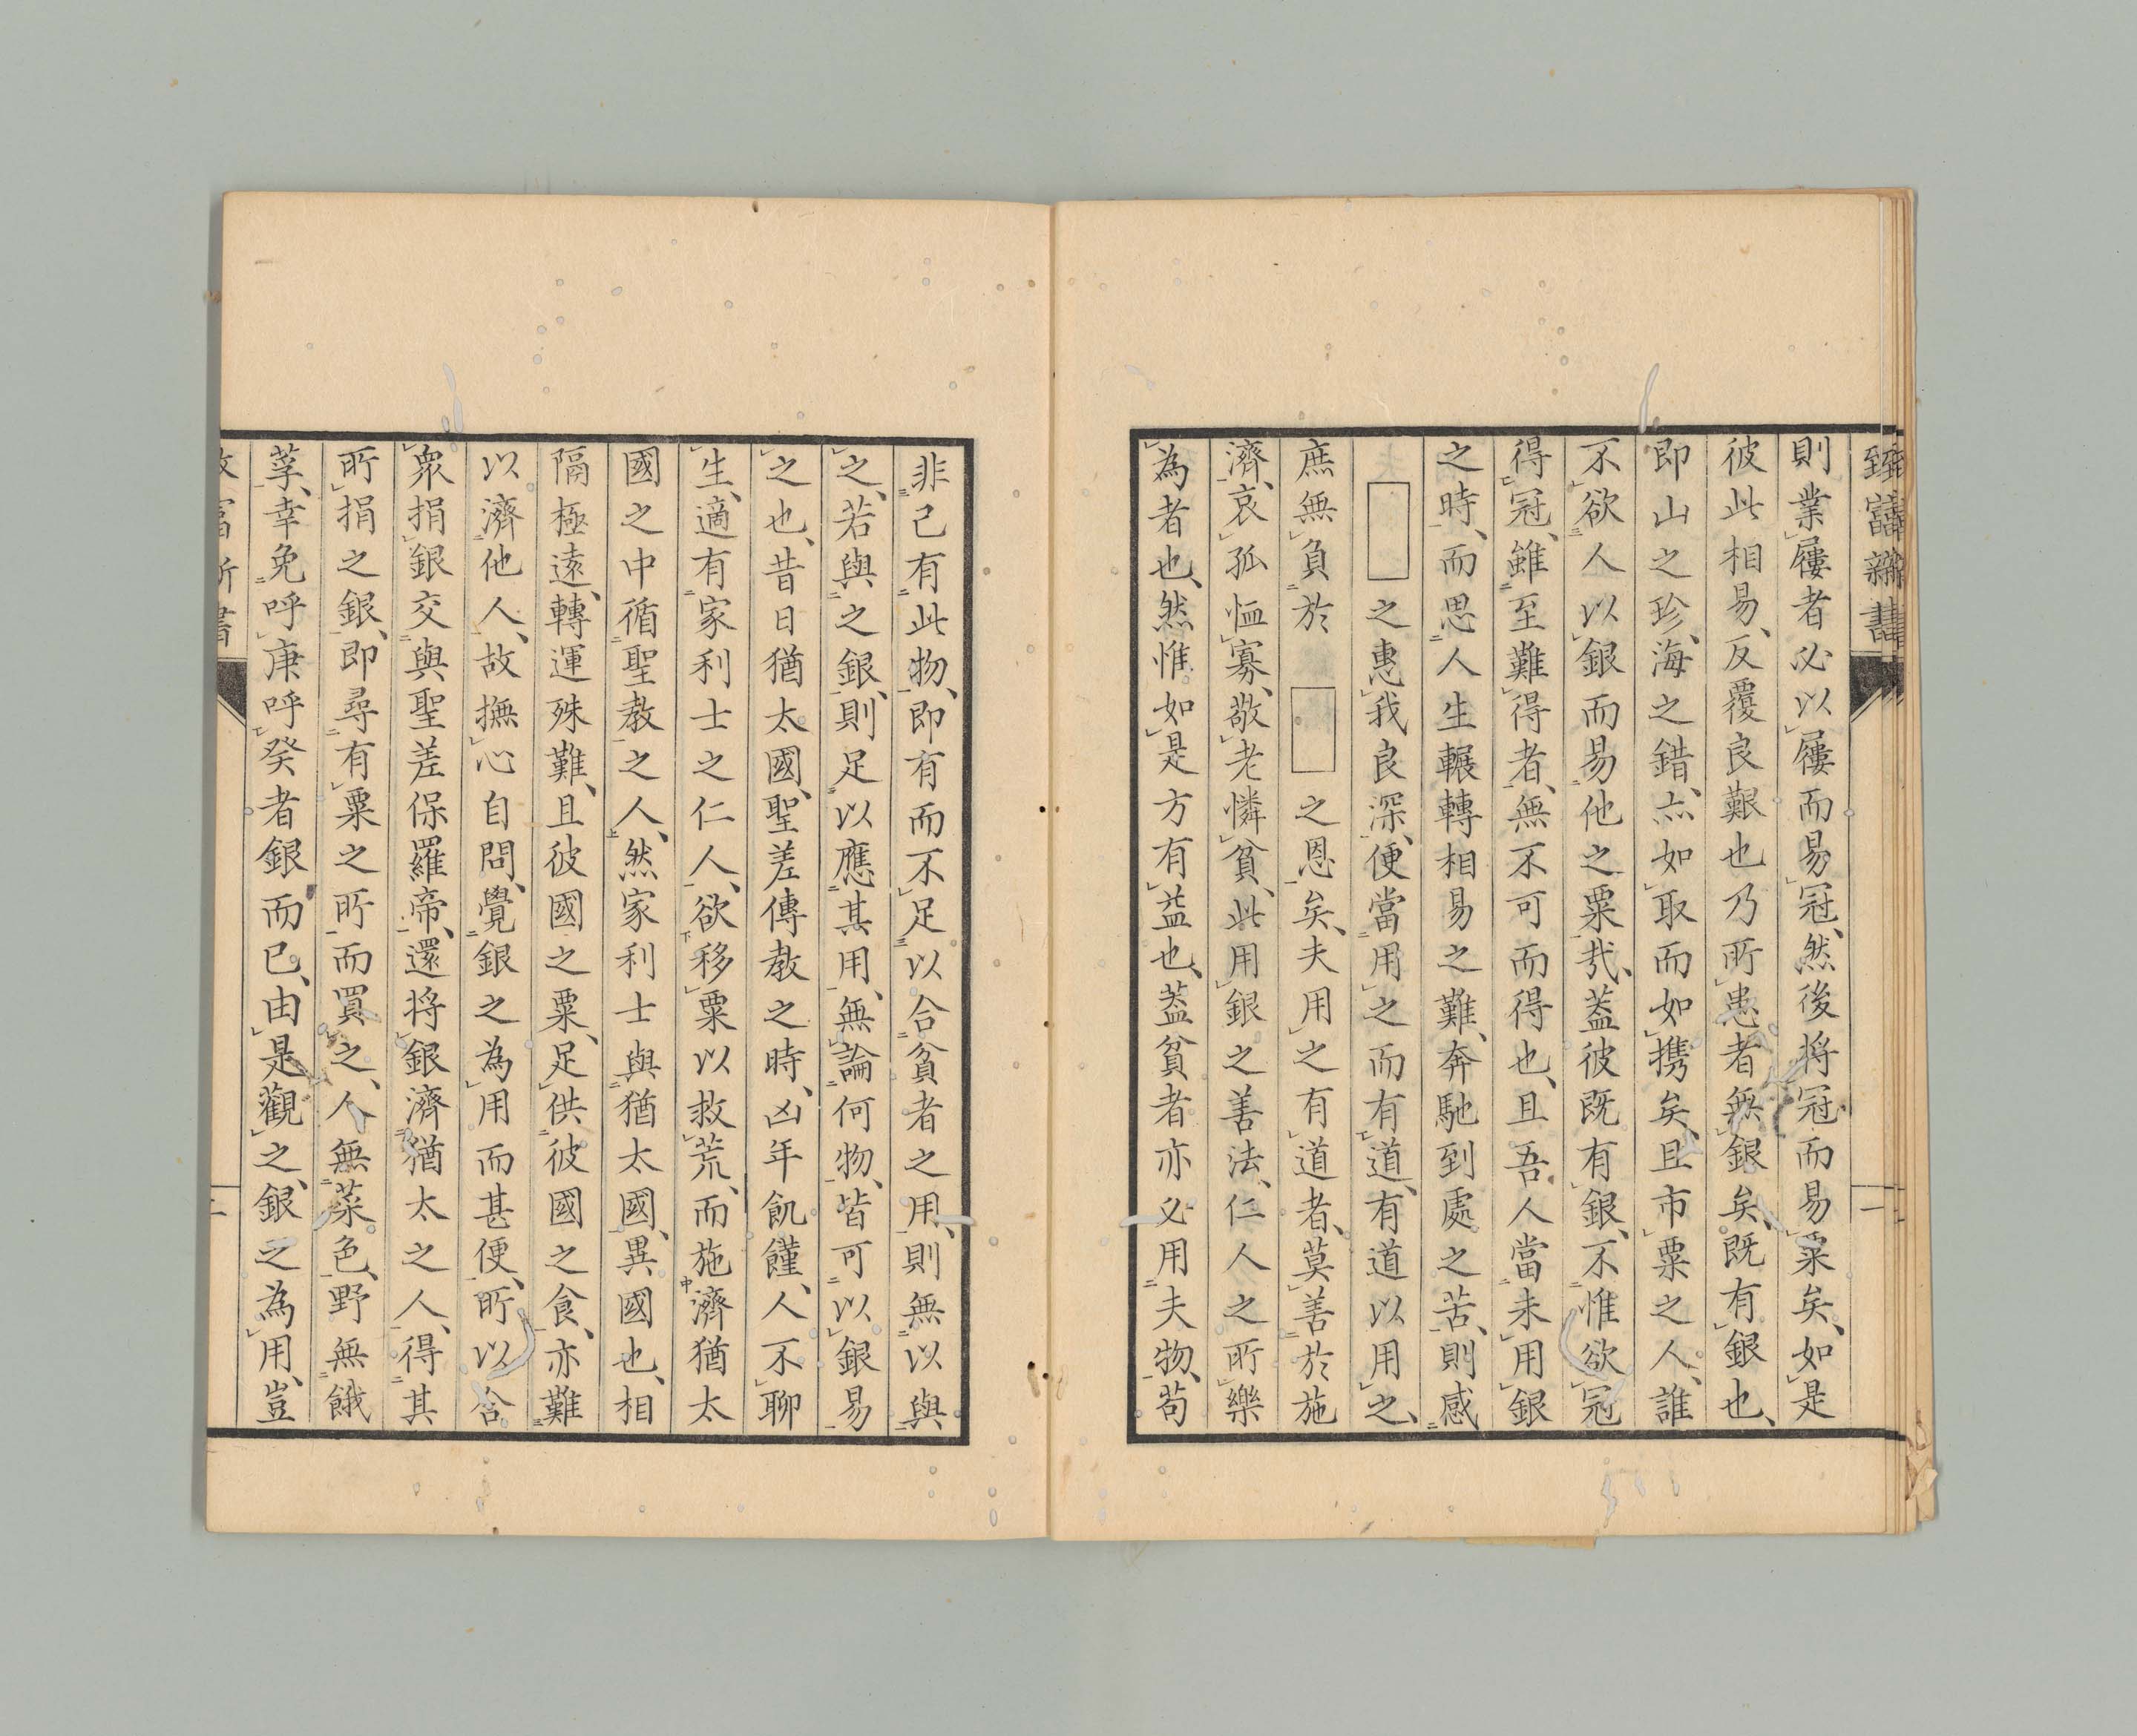 致富新書
則業屨者必以屨而易冠、然後將冠而易粟矣、如是
彼此相易、反覆良艱也乃所患者無銀矣、既有銀也、
即山之珍、海之錯、亦如取而如携矣、且市粟之人、誰
不欲人以銀而易他之粟哉、蓋彼既有銀、不惟欲冠
得冠、雖至難得者、無不可而得也、且吾人當未用銀
之時、而思人生輾轉相易之難、奔馳到處之苦、則感
之惠我良深、便當用之而有道、有道以用之、
庶無負於 之恩矣、夫用之有道者、莫善於施
濟、哀孤恤寡、敬老憐貧、此用銀之善法、仁人之所樂
為者也、然惟如是方有益也、蓋貧者亦必用夫物、苟
非己有此物、即有而不足以合貧者之用、則無以與
之、若與之銀、則足以應其用、無論何物、皆可以銀易
之也、昔日猶太國、聖差傳教之時、凶年飢饉、人不聊
生、適有家利士之仁人、欲移粟以救荒、而施濟猶太
國之中循聖教之人、然家利士與猶太國、異國也、相
隔極遠、轉運殊難、且彼國之粟、足供彼國之食、亦難
以濟他人、故撫心自問、覺銀之為用而甚便、所以合
衆捐銀交與聖差保羅帝、還将銀濟猶太之人、得其
所捐之銀、即尋有粟之所而買之、人無菜色、野無餓
莩、幸免呼庚呼癸者銀而已、由是觀之、銀之為用、豈
致富新書
二